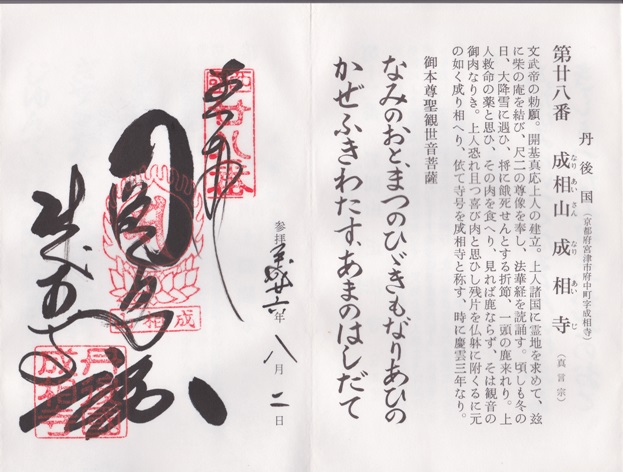 第廿八番
丹後国(京都府宮津市府中町字成相寺)
成相山 成相寺(真言宗)
なりあいさん なりあいじ
文武帝の勅願。開基真応上人の建立。上人諸国に霊地を求めて、玆
に柴の庵を結び、尺二の尊像を奉し、法華経を読誦す。頃しも冬の
日、大降雪に遇ひ、将に餓死せんとする折節、一頭の鹿来れり。上
人救命の薬と思ひ、その肉を食へり、見れば鹿ならず、そは観音の
御肉なりき。上人恐れ且つ喜び肉と思ひし残片を仏躰に附くるに元
の如く成り相へり、依て寺号を成相寺と称す、時に慶雲三年なり。
御本尊聖観世音菩薩
なみのおと、まつのひゞきも、なりあひの
かぜふきわたす、あまのはしだて
参拝 廿六年八月二日
奉拝
成相寺